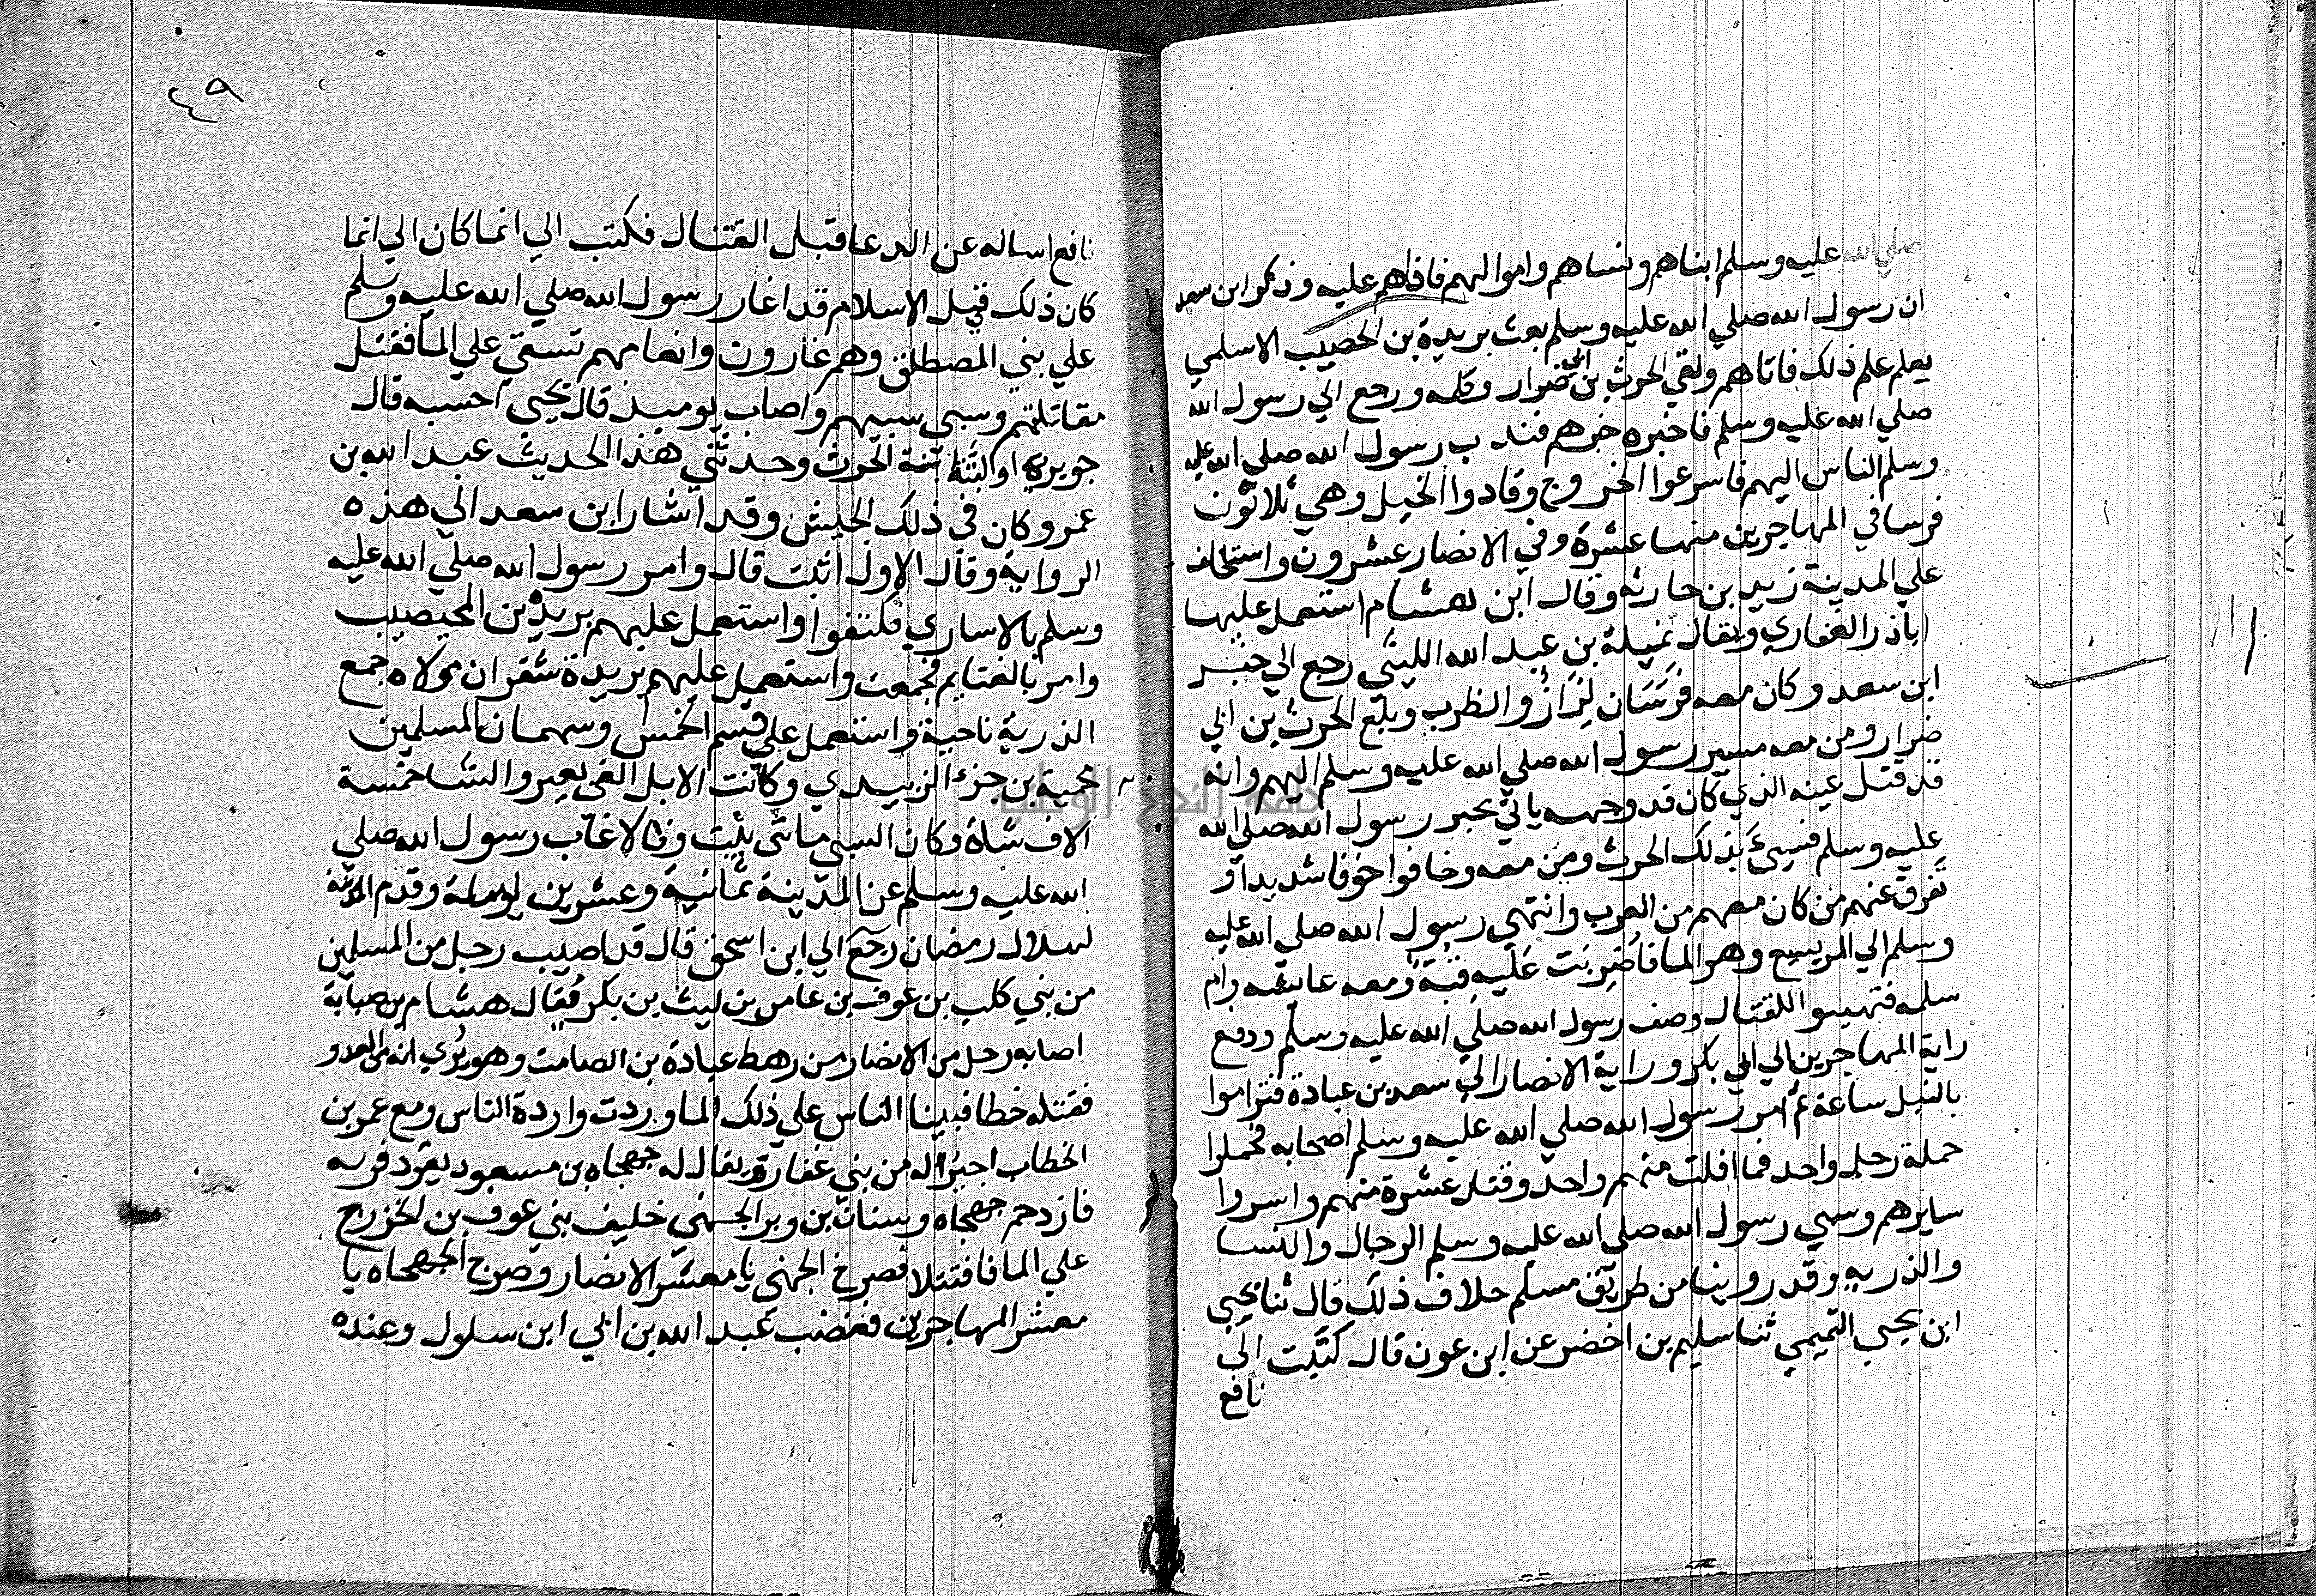 صلي الله عليه وسلم ابناهم ونساهم واموالهم فافاهم عليه وذكر ابن سعد
ان رسول الله صلي الله عليه وسلم بعث بريدة بن الحصيب الاسلمي
يعلم علم ذلك فاتاهم ولقي الحرث بن ابي ضرار وكلمه ورجع الي رسول الله
صلي الله عليه وسلم فاخبره خبرهم فندب رسول الله صلي الله عليه
وسلم الناس اليهم فاسرعوا الخروج وقادوا الخيل وهي ثلاثون
فرسا في المهاجرين منها عشرة وفي الانصار عشرون واستخلف
علي المدينة زيد بن حارثه وقال ابن هشام استعمل عليها
اباذر الغفاري ويقال نميلة بن عبد الله الليثي رجع الي خبر
ابن سعد وكان معه فرسان لزاز والظرب وبلغ الحرث بن ابي
ضرار ومن معه مسير رسول الله صلي الله عليه وسلم اليهم وانه
قد قتل عينه الذي كان قد وجهه ياتي بخبر رسول الله صلي الله
عليه وسلم فسيئ بذلك الحرث ومن معه وخافوا خوفا شديدا و
تفرق عنهم من كان معهم من العرب وانتهي رسول الله صلي الله عليه
وسلم الي المريسيع وهو الما فاضربت عليه قبة ومعه عايشه وام
سلمه فتهيوا للقتال وصف رسول الله صلي الله عليه وسلم ودفع
راية المهاجرين الي ابي بكر وراية الانصار الي سعد بن عبادة فتراموا
بالنبل ساعة ثم امر رسول الله صلي الله عليه وسلم اصحابه فحملوا
حملة رجل واحد فما افلت منهم واحد وقتل عشرة منهم واسروا
سايرهم وسبي رسول الله صلي الله عليه وسلم الرجال والنسا
والذريه وقد روينا من طريق مسلم خلاف ذلك قال ثنا يحيي
ابن يحيي التميمي ثنا سليم بن اخضر عن ابن عون قال كتبت الي
نافع
٤٩
نافع اساله عن الدعا قبل القتال فكتب الي انما كان الي انما
كان ذلك قبل الاسلام قد اغار رسول الله صلي الله عليه وسلم
علي بني المصطلق وهم غارون وانعامهم تسقي علي الما فقتل
مقاتلتهم وسبي سبيهم واصاب يوميذ قال يحيي احسبه قال
جويرية او البتة ابنة الحرث وحدثني هذا الحديث عبد الله بن
عمر وكان في ذلك الجيش وقد اشار ابن سعد الي هذه
الرواية وقال الاول اثبت قال وامر رسول الله صلي الله عليه
وسلم بالاساري فكتفوا واستعمل عليهم بريدة بن الحصيب
وامر بالغنايم فجمعت واستعمل عليهم بريدة شقران مولاه جمع
الذرية ناحية واستعمل علي قسم الخمس وسهمان المسلمين
محمية بن جزء الزبيدي وكانت الابل الفي بعير والشا خمسة
الاف شاة وكان السبي مائتي بيت وقالا غاب رسول الله صلي
الله عليه وسلم عن المدينة ثمانية وعشرين ليلة وقدم المدينة
لهلال رمضان رجع الي ابن اسحق قال قد اصيب رجل من المسلمين
من بني كلب بن عوف بن عامر بن ليث بن بكر فقال هشام بن صبابة
اصابه رجل من الانصار من رهط عبادة بن الصامت وهو يري انه من العدو
فقتله خطا فبينا الناس علي ذلك الما وردت واردة الناس ومع عمر بن
الخطاب اجير له من بني غفار يقال له جهجاه بن مسعود يقود فرسه
فازدحم جهجاه وسنان بن وبر الجهني حليف بني عوف بن الخزرج
علي الما فاقتتلا فصرخ الجهني يا معشر الانصار وصرخ الجهجاه يا
معشر المهاجرين فغضب عبد الله بن ابي ابن سلول وعنده